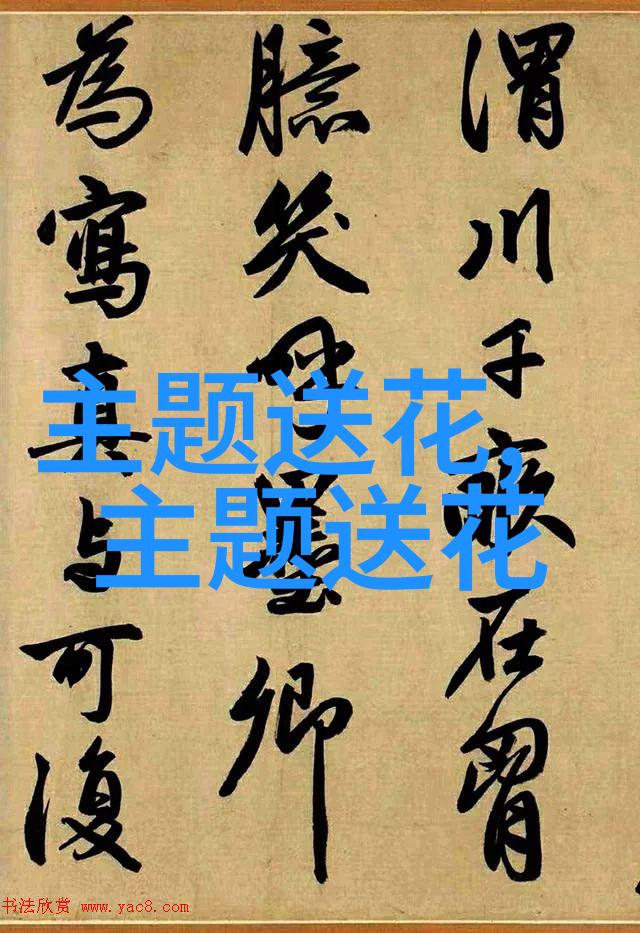 渭川千畝在胷
臆笑呼墨卿
為寫真与可復
主题送花,
主题送花
书法欣赏 www.yac8.com